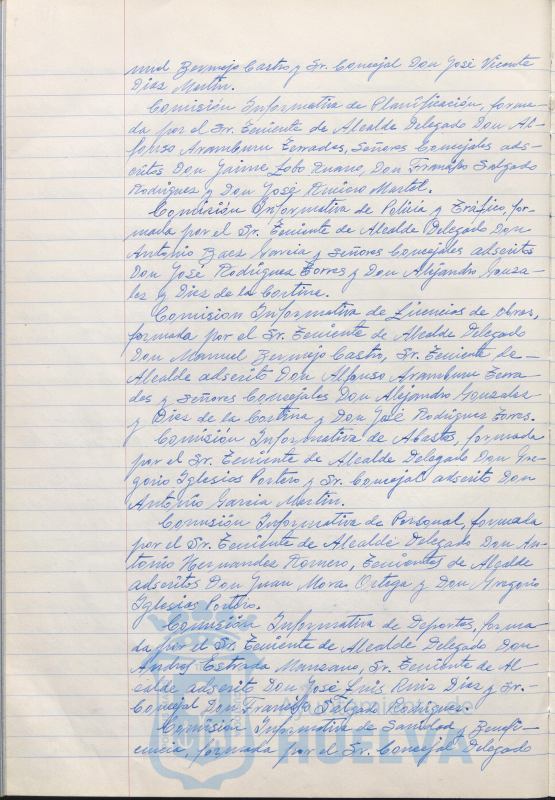 nuel Bermejo Castro y Sr. Concejal Don José Vicente
Díaz Martin.
Comisión Informativa de Planificación, forma-
da por el Sr. Teniente de Alcalde Delegado Don Al-
fonso Aramburu Terrades, Señores Concejales ads-
critos Don Jaime Lobo Ruano, Don Francisco Salgado
Rodriguez y Don José Martel.
Comisión Informativa de Policía y Tráfico, for-
mada por el Sr. Teniente de Alcalde Delegado Don
Antonio Baez Garcia y Señores Concejales adscritos
Don José Rodriguez Torres y Don Alejandro Gonza-
lez y Diez de la Cortina.
Comision Informativa de Licencias de Obras,
formada por el Sr. Teniente de Alcalde Delegado
Don Manuel Bermejo Castro, Sr. Teniente de-
Alcalde adscrito Don Alfonso Aramburu Terra-
des y Señores Concejales Don Alejandro Gonzalez
y Diez de la Cortina y Don José Rodriguez Torres.
Comisión Informativa de Abastos, formada
por el Sr. Teniente de Alcalde Delegado Don Gre-
gorio Iglesias Portero y Sr. Concejal adscrito Don
Antonio Garcia Martin.
Comisión Informativa de Personal, formada
por el Sr. Teniente de Alcalde Delegado Don An-
tonio Hernandez Romero, Tenientes de Alcalde
adscritos Don Juan Mora Ortega y Don Gregorio
Iglesias Portero.
Comisión Informativa de Deportes, forma-
da por el Sr. Teniente de Alcalde Delegado Don
Andres Estrada Manzano, Sr. Teniente de Al-
calde adscrito Don José Luis Ruiz Diaz y Sr.-
Concejal Don Francisco Salgado Rodriguez.
Comisión Informativa de Sanidad y Benefi-
cencia, formada por el Sr. Concejal Delegado
HUELVA